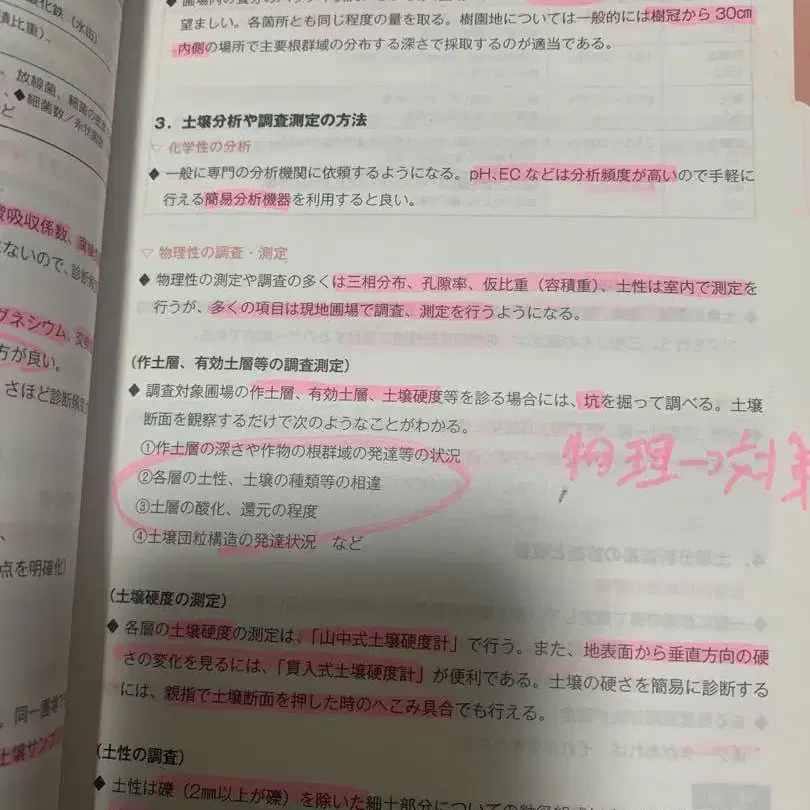 望ましい。各箇所とも同じ程度の量を取る。樹園地については一般的には樹冠から30cm
内側の場所で主要根群域の分布する深さで採取するのが適当である。
3．土壌分析や調査測定の方法
▽ 化学性の分析
◆ 一般に専門の分析機関に依頼するようになる。pH、ECなどは分析頻度が高いので手軽に
行える簡易分析機器を利用すると良い。
▽ 物理性の調査・測定
◆ 物理性の測定や調査の多くは三相分布、孔隙率、仮比重（容積重）、土性は室内で測定を
行うが、多くの項目は現地圃場で調査、測定を行うようになる。
(作土層、有効土層等の調査測定)
◆ 調査対象圃場の作土層、有効土層、土壌硬度等を診る場合には、坑を掘って調べる。土壌
断面を観察するだけで次のようなことがわかる。
①作土層の深さや作物の根群域の発達等の状況
②各層の土性、土壌の種類等の相違
③土層の酸化、還元の程度
④土壌団粒構造の発達状況　など
物理→
(土壌硬度の測定)
◆ 各層の土壌硬度の測定は、「山中式土壌硬度計」で行う。また、地表面から垂直方向の硬
さの変化を見るには、「貫入式土壌硬度計」が便利である。土壌の硬さを簡易に診断する
には、親指で土壌断面を押した時のへこみ具合でも行える。
(土性の調査)
◆ 土性は礫（2mm以上が礫）を除いた細土部分についての
化鉄（水田）
積比重）、
放線菌、細菌の密度
◆細菌数／糸状菌数
ど
吸収係数、
ないので、診断
グネシウム、
方が良い。
さほど診断頻度
点を明確化）
同一圃場
土壌サンプ